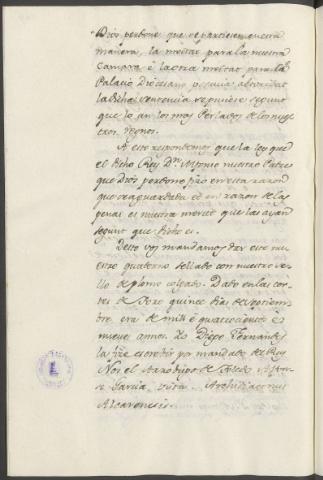 Dios perdone que se partiesen en esta
manera, la meitat para la nuestra
Camara è la otra meitat para el
Palacio Diocesano
la dicha sentencia se pusiere segunt
que lo an los mas Perlados de los nues
tros regnos.
A esto respondemos que la ley que
el dicho Rey Dn. Alfonso nuestro Padre
que Dios perdone fizo en esta razon
que sea guardada et en razon de las
penas es nuestra mercet que las ayan
segunt que dicho es.
Desto vos mandamos dar este nu
estro quaderno sellado con nuestro se
llo de plomo colgado. Dado en las cor
tes de Toro quince dias de
bre era de mill è quatrocientos è
nueve annos. Yo Diego Fernandez
la fize escrebir por mandado del Rey
Nos el Arzobispo de Toledo Alfon
Garcia, vista. Archidiaconus
Alcarensis.